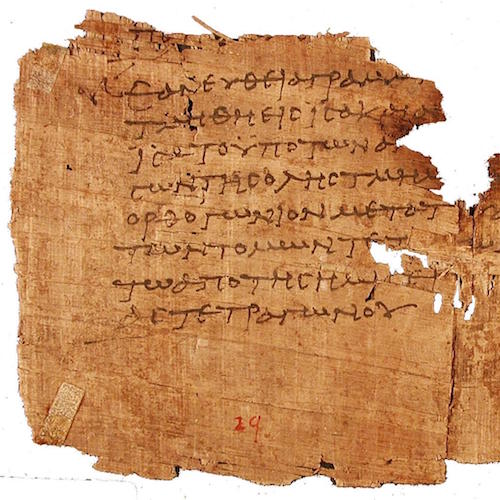 ΕΑΝ ΕΥΘΕΙΑ ΓΡΑΜΜ
ΤΜΗΘΗ ΕΙϹ ΙϹΑ ΚΑΙ Α
ΙϹΑ ΤΟ ΥΠΟ ΤΩΝ Α
ϹΩΝ ΤΗϹ ΟΛΗϹ ΤΜΗΜ
ΟΡΘΟΓΩΝΙΟΝ ΜΕΤΑ Τ
ΤΩΝ ΤΟΜΩΝ ΤΕΤ
ΤΩ ΑΠΟ ΤΗϹ ΗΜΙϹ
ΑϹ ΤΕΤΡΑΓΩΝΟΥ
29.